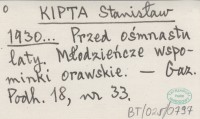 KIPTA Stanisław
1930... Przed ośmnastu
laty. Młodzieńcze wspo-
minki orawskie. — Gaz.
Podh. 18, nr 33.
BT/025/0797